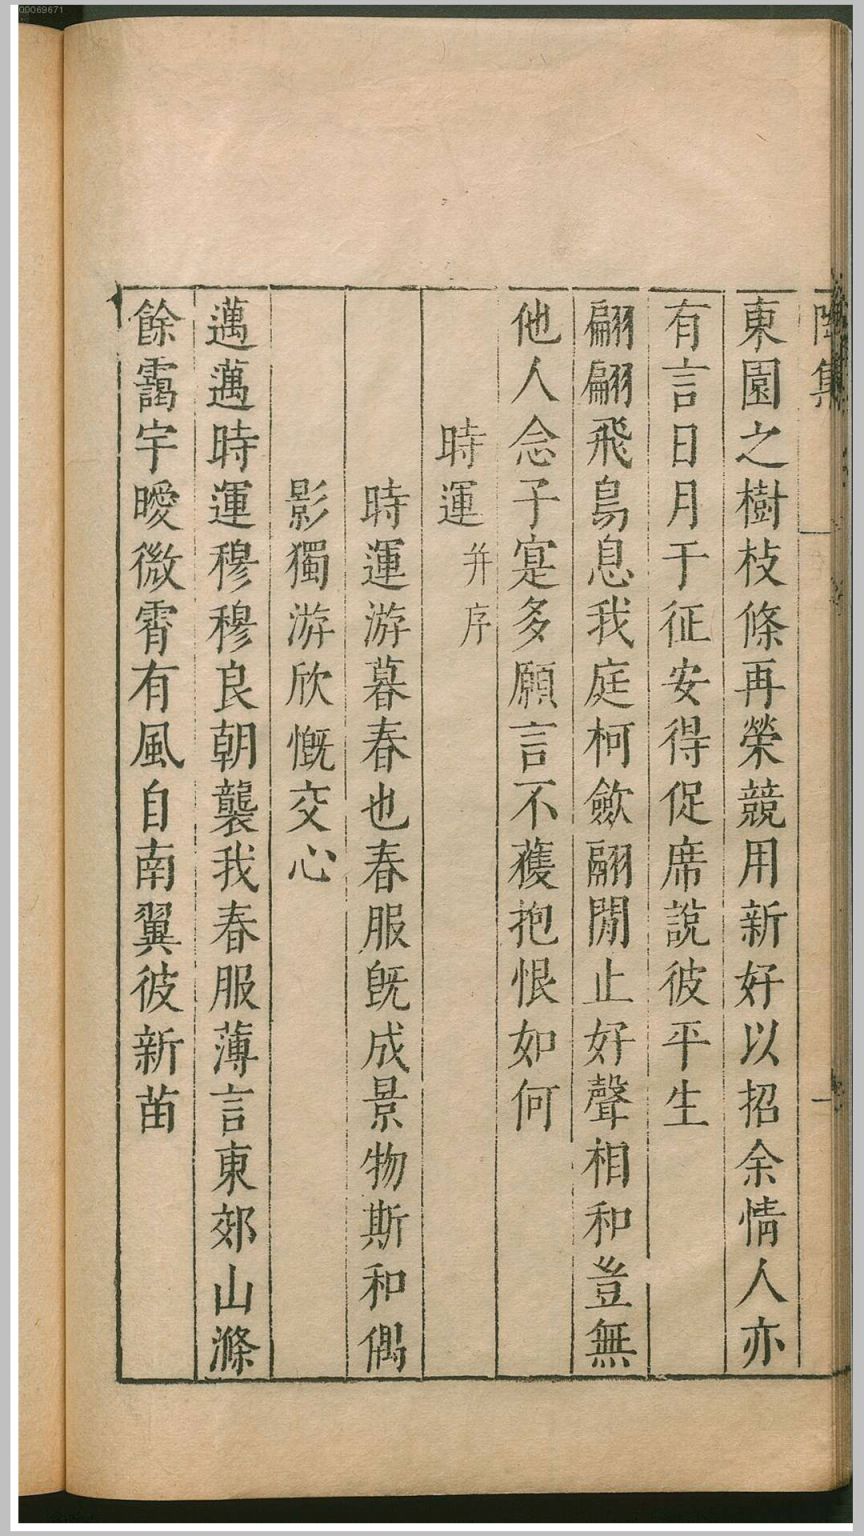 00069671
陶集
東園之樹枝條再榮競用新好以招余情人亦
有言日月于征安得促席說彼平生
翩翩飛鳥息我庭柯斂翮閒止好聲相和豈無
他人念子寔多願言不獲抱恨如何
時運并序
時運游暮春也春服既成景物斯和偶
影獨游欣慨交心
邁邁時運穆穆良朝襲我春服薄言東郊山滌
餘靄宇曖微霄有風自南翼彼新苗